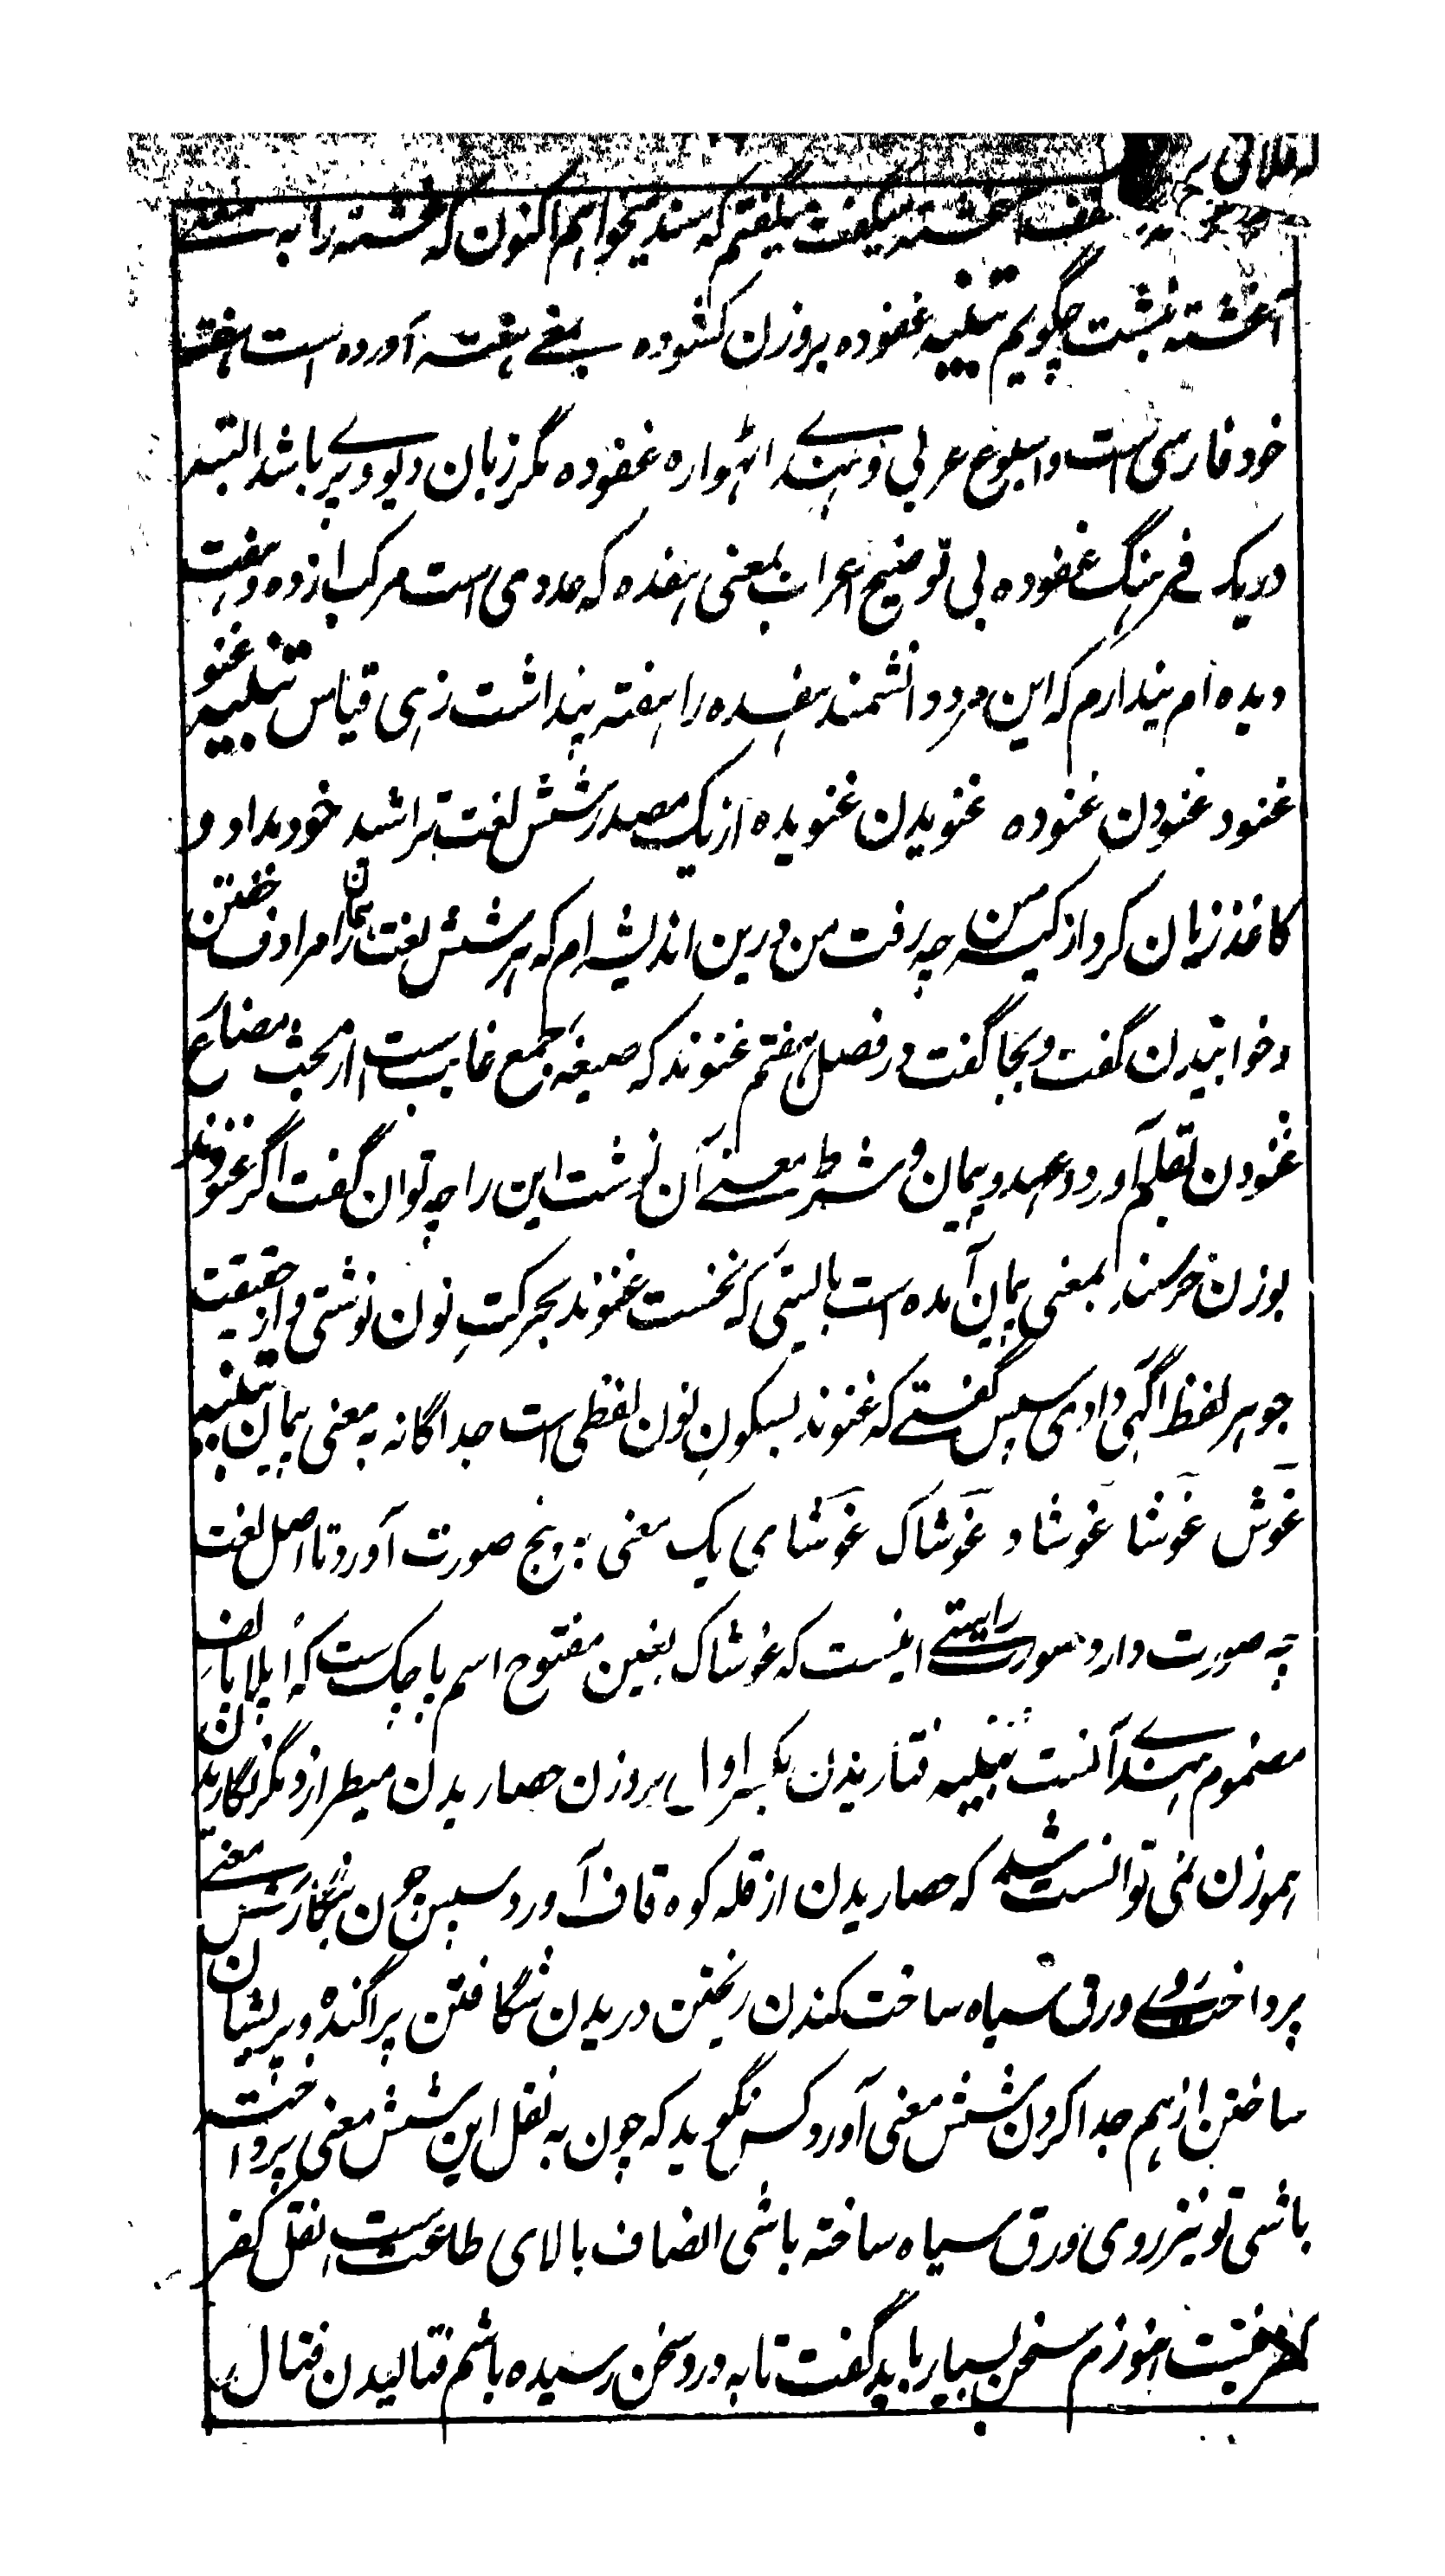 میگفت میگفتم که سند میخواهم اکنون که غشته را به معنی
آغشته نبشت چگویم تنبیه غفوده بروزن کشوده بمعنے ہفتہ آورده است ہفتہ
خود فارسی ست و اسبوع عربی و ہندے اٹھواره غفوده مگر زبان دیو و پری باشد البتہ
در یک فرہنگ غفوده بی توضیح اعراب بمعنی ہفده که عددی است مرکب از ده و ہفت
دیده ام پندارم که این مرد دانشمند ہفده را ہفتہ پنداشت زہی قیاس تنبیہ غنو
غنود غنودن غنوده غنویدن غنویده از یک مصدر شش لغت تراشید خود مداد و
کاغذ زیان کرد از کیسه من چه رفت من درین اندیشه ام که ہر شش لغت را مرادف خفتن
و خوابیدن گفت و بجا گفت در فصل ہفتم غنوند که صیغہ جمع غایب ست از بحث مضارع
غنودن بقلم آورد و عہد و پیمان و شرط معنے آن نوشت این را چه توان گفت اگر غنوند
بوزن خرسند بمعنی پیمان آمده است بایستی که نخست غنوند بحرکتِ نون نوشتی و از حقیقت
جوہر لفظ آگہی دادی سپس گفتے که غنوند بسکونِ نون لفظی است جداگانه به معنی پیمان تنبیہ
غَوش غَوشا غَوشاد غَوشاک غَوشای یک معنی به پنج صورت آورد تا اصل لغت
چه صورت دارد صورت راستے اینست که غوشاک بغین مفتوح اسم پاچک ست که اُپلا بالف
مضموم ہندے آنست تنبیہ فتاریدن بکسر اول بروزن حصاریدن میطرازد مگر نگاریدن
ہموزن نمی توانست شد که حصاریدن از قلہ کوه قاف آورد سپس چون بنگارش معنے
پرداخت روے ورق سیاه ساخت کندن ریختن دریدن شگافتن پراگنده و پریشان
ساختن از ہم جدا کردن شش معنی آورد کس نگوید که چون به نقل این شش معنی پرداختہ
باشی تو نیز روی ورق سیاه ساخته باشی انصاف بالای طاعت ست نقل کفر
کفر نیست ہنوزم سخن بسیار باید گفت تا به درد سخن رسیده باشم فتالیدن فتال